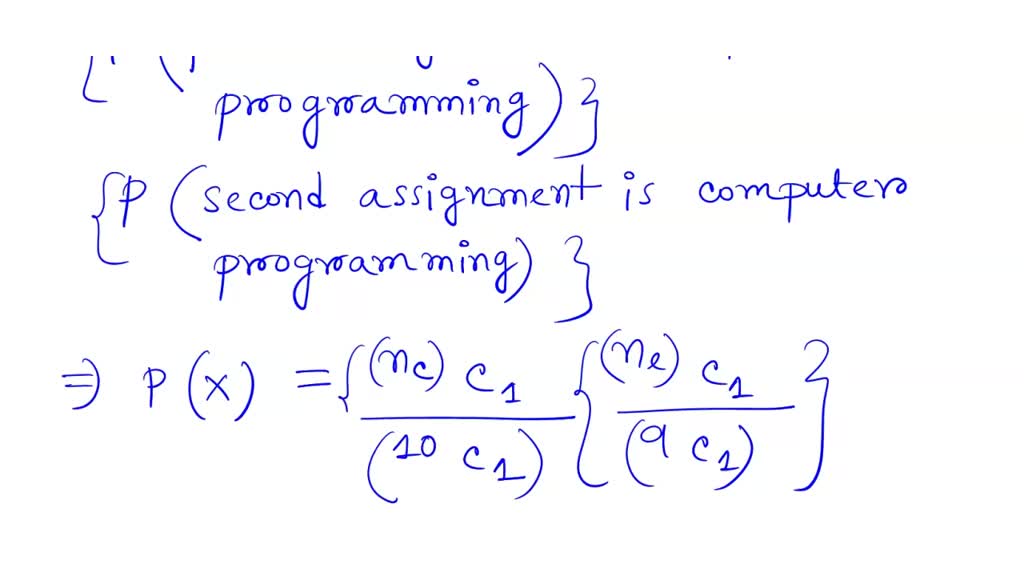 programming)}
{P (second assignment is computer
programming) }
⇒ P(x) = { (nc) c1 / (10 c1) { (ne) c1 / (9 c1) }